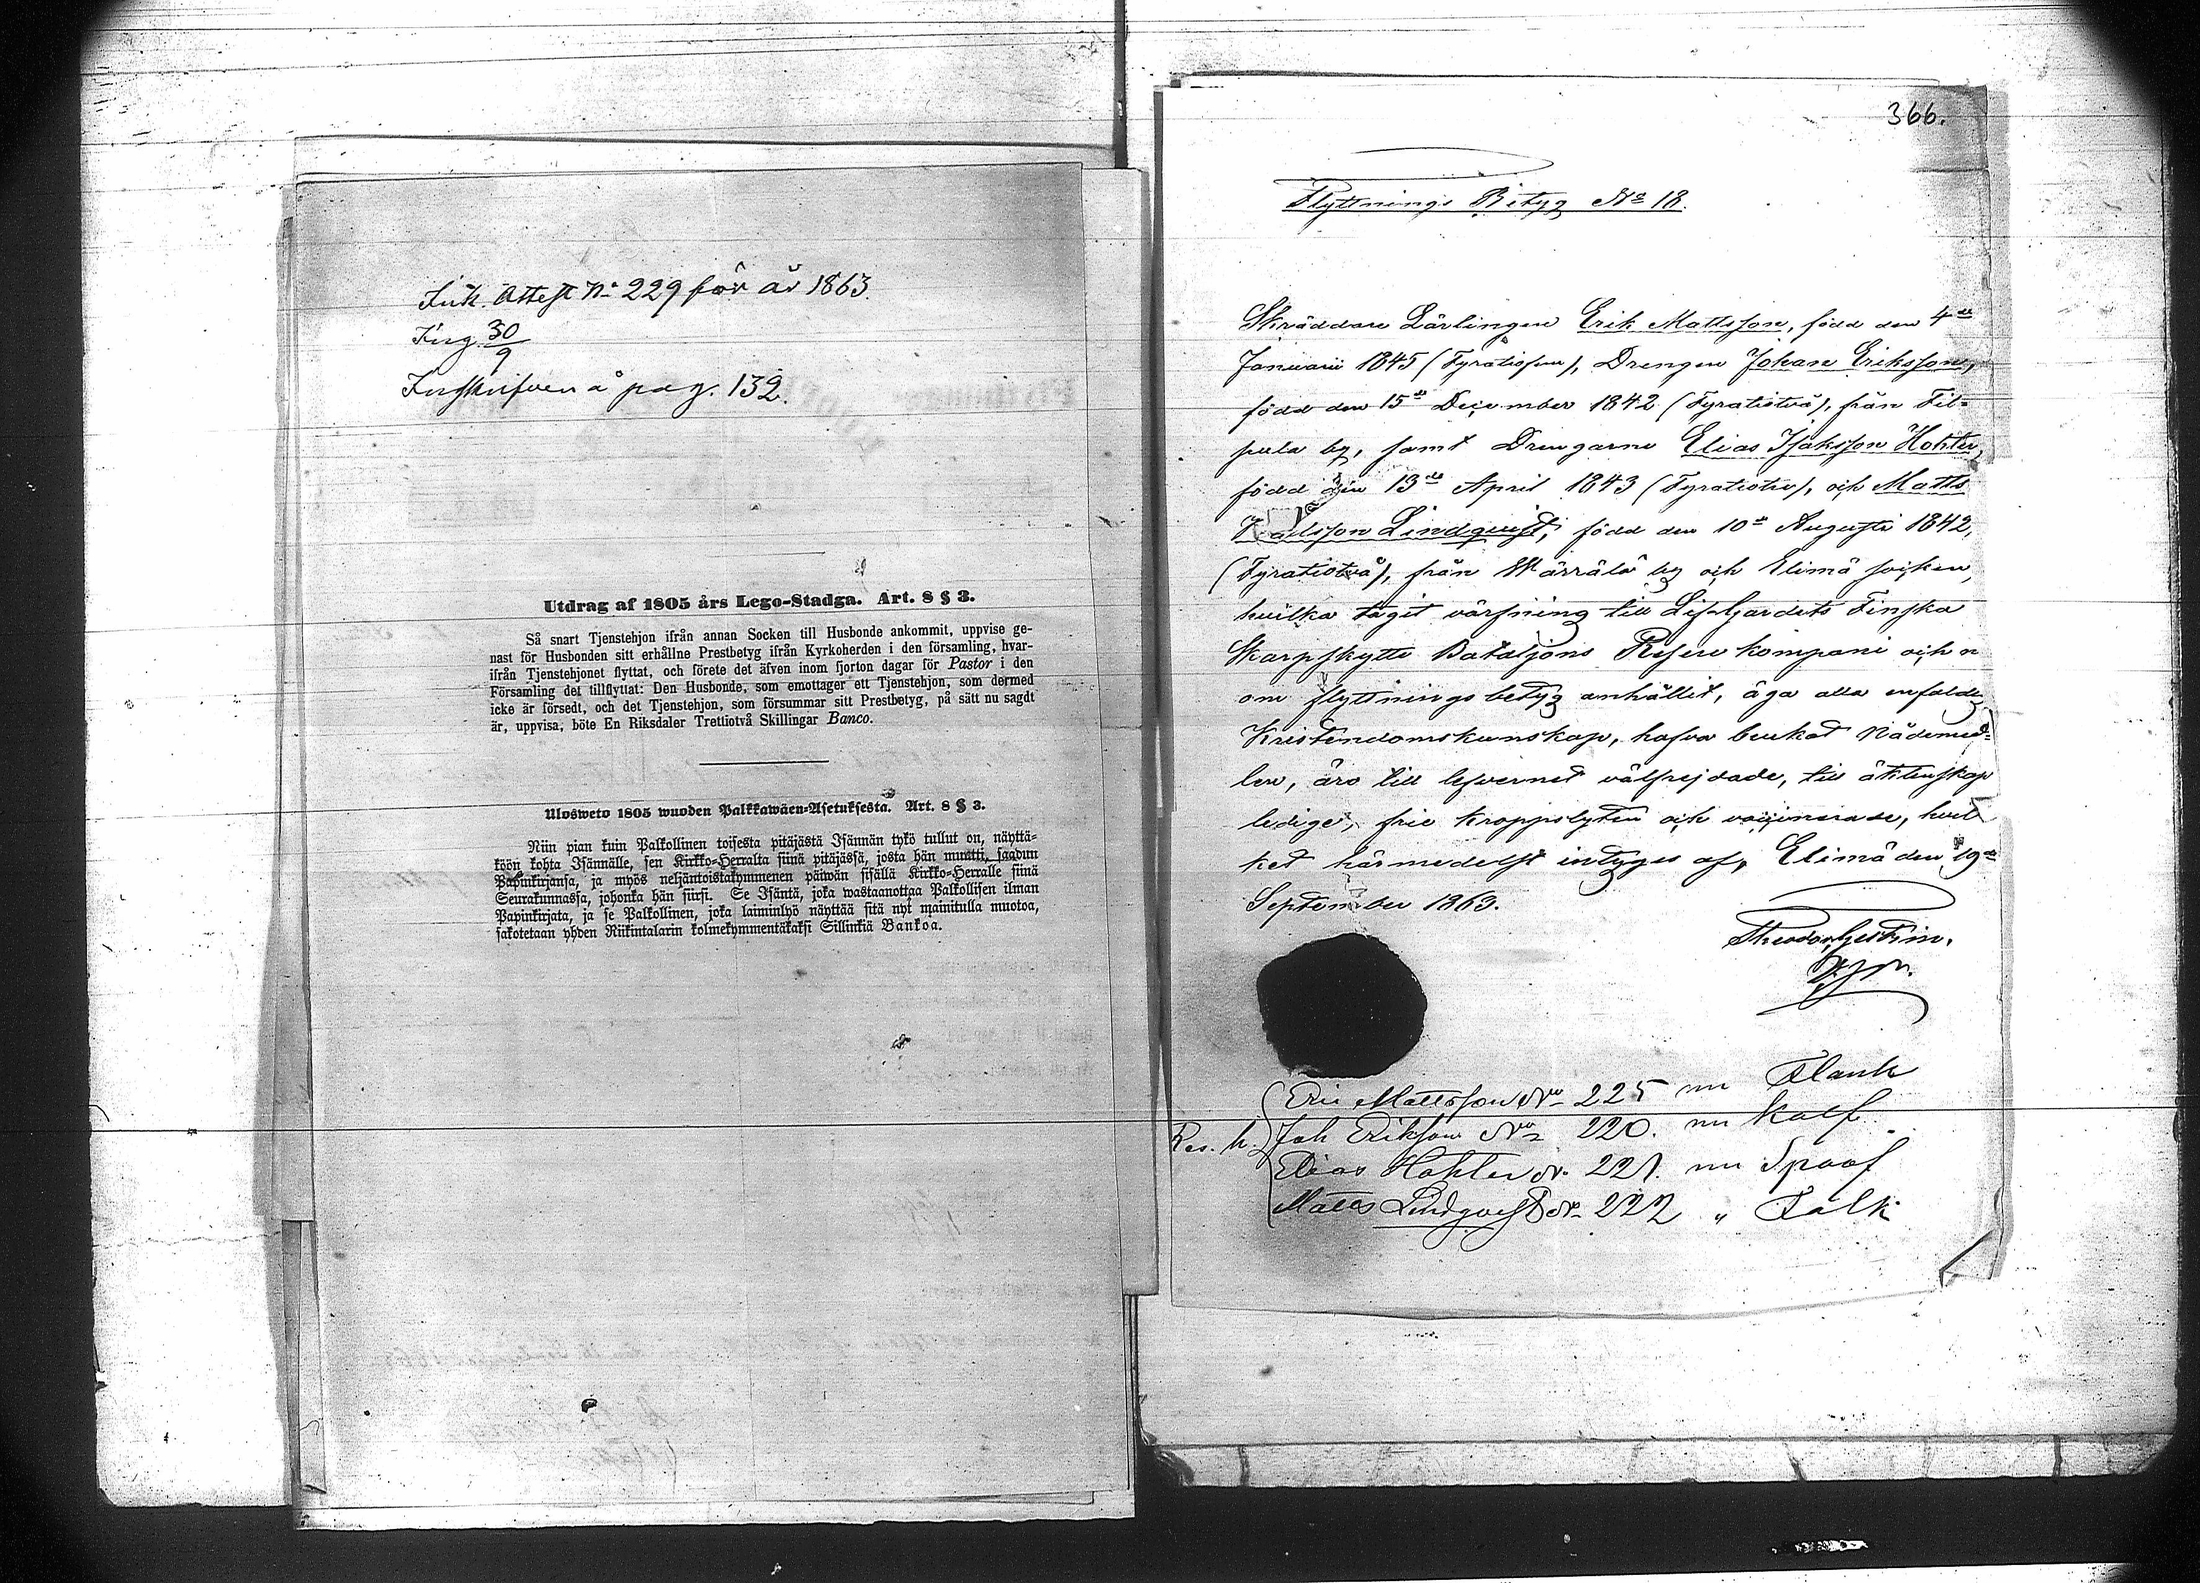 Ink. Attest No 229 för år 1863.
Ing. 30/9
Inskrifven å pag. 132.
Utdrag af 1805 års Lego-Stadga. Art. 8 § 3.
Så snart Tjenstehjon ifrån annan Socken till Husbonde ankommit, uppvise ge-
nast för Husbonden sitt erhållne Prestbetyg ifrån Kyrkoherden i den församling, hvar-
ifrån Tjenstehjonet flyttat, och förete det äfven inom fjorton dagar för Pastor i den
Församling det tillflyttat: Den Husbonde, som emottager ett Tjenstehjon, som dermed
icke är försedt, och det Tjenstehjon, som försummar sitt Prestbetyg, på sätt nu sagdt
är, uppvisa, böte En Riksdaler Trettiotvå Skillingar Banco.
Ulosweto 1805 wuoden Palkkawäen-Asetuksesta. Art. 8 § 3.
Niin pian kuin Palkollinen toisesta pitäjästä Isännän tykö tullut on, näyttä-
köön kohta Isännälle, sen Kirkko-Herralta siinä pitäjässä, josta hän muutti, saadun
Papinkirjansa, ja myös neljäntoistakymmenen päiwän sisällä Kirkko-Herralle siinä
Seurakunnassa, johonka hän siirsi. Se Isäntä, joka wastaanottaa Palkollisen ilman
Papinkirjata, ja se Palkollinen, joka laiminlyö näyttää sitä nyt mainitulla muotoa,
sakotetaan yhden Riikintalarin kolmekymmentäkaksi Sillinkiä Bankoa.
366.
Flyttnings Betyg No 18.
Skräddare Lärlingen Erik Mattsson, född den 4de
Januarii 1845 (Fyratiofem), Drengen Johan Eriksson,
född den 15de December 1842 (Fyratiotvå), från Fil-
pula by, samt Drengarne Elias Isaksson Hohter,
född den 13de April 1843 (Fyratiotre), och Matts
Karlsson Lindqvist, född den 10de Augusti 1842,
(Fyratiotvå), från Wärrälä by och Elimä socken,
hvilka tagit värfning till Lif-Gardets Finska
Skarpskytte Bataljons Reserv kompani och
om flyttningsbetyg anhållit, äga alla enfaldig
Kristendomskunskap, hafva brukat Nådemed-
len, äro till lefvernet välfrejdade, till äktenskap
ledige, frie kroppslyten och vaccinerade, hvil-
ket härmedelst intygas af, Elimä den 19de
September 1863.
Theodor
Eric Mattsson No 225 nu Flank
Res. k. Joh Eriksson No 220. nu Kalf
Elias Hohter N. 221. nu Spoof
Matts Lindqvist No 222 " Falk